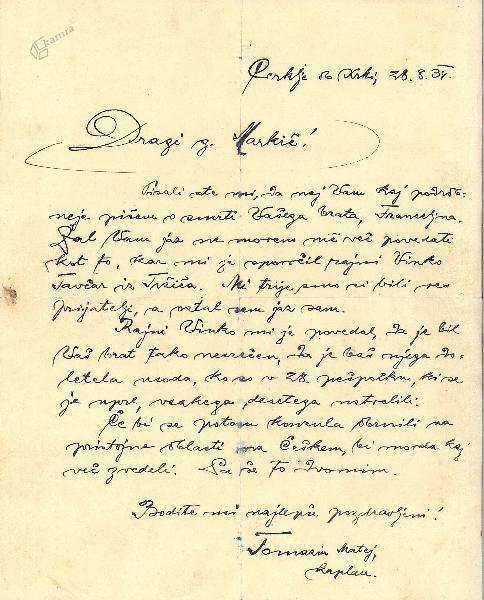 kamra
Cerklje ob Krki, 28. 8. 34.
Dragi g. Markič!
Pisali ste mi, da naj Vam kaj podrob-
neje pišem o smrti Vašega brata, Franceljna.
Žal Vam jaz ne morem nič več povedati
kot to, kar mi je sporočil rajni Vinko
Tavčar iz Tržiča. Mi trije smo si bili vsi
prijatelji, a ostal sem jaz sam.
Rajni Vinko mi je povedal, da je bil
Vaš brat tako nesrečen, da je baš njega do-
letela usoda, ko so v 28. pešpolku, ki se
je uprl, vsakega desetega ustrelili.
Če bi se potom konzula obrnili na
pristojne oblasti na Češkem, bi morda kaj
več zvedeli. Pa še to dvomim.
Bodite mi najlepše pozdravljeni!
Tomazin Matej,
kaplan.